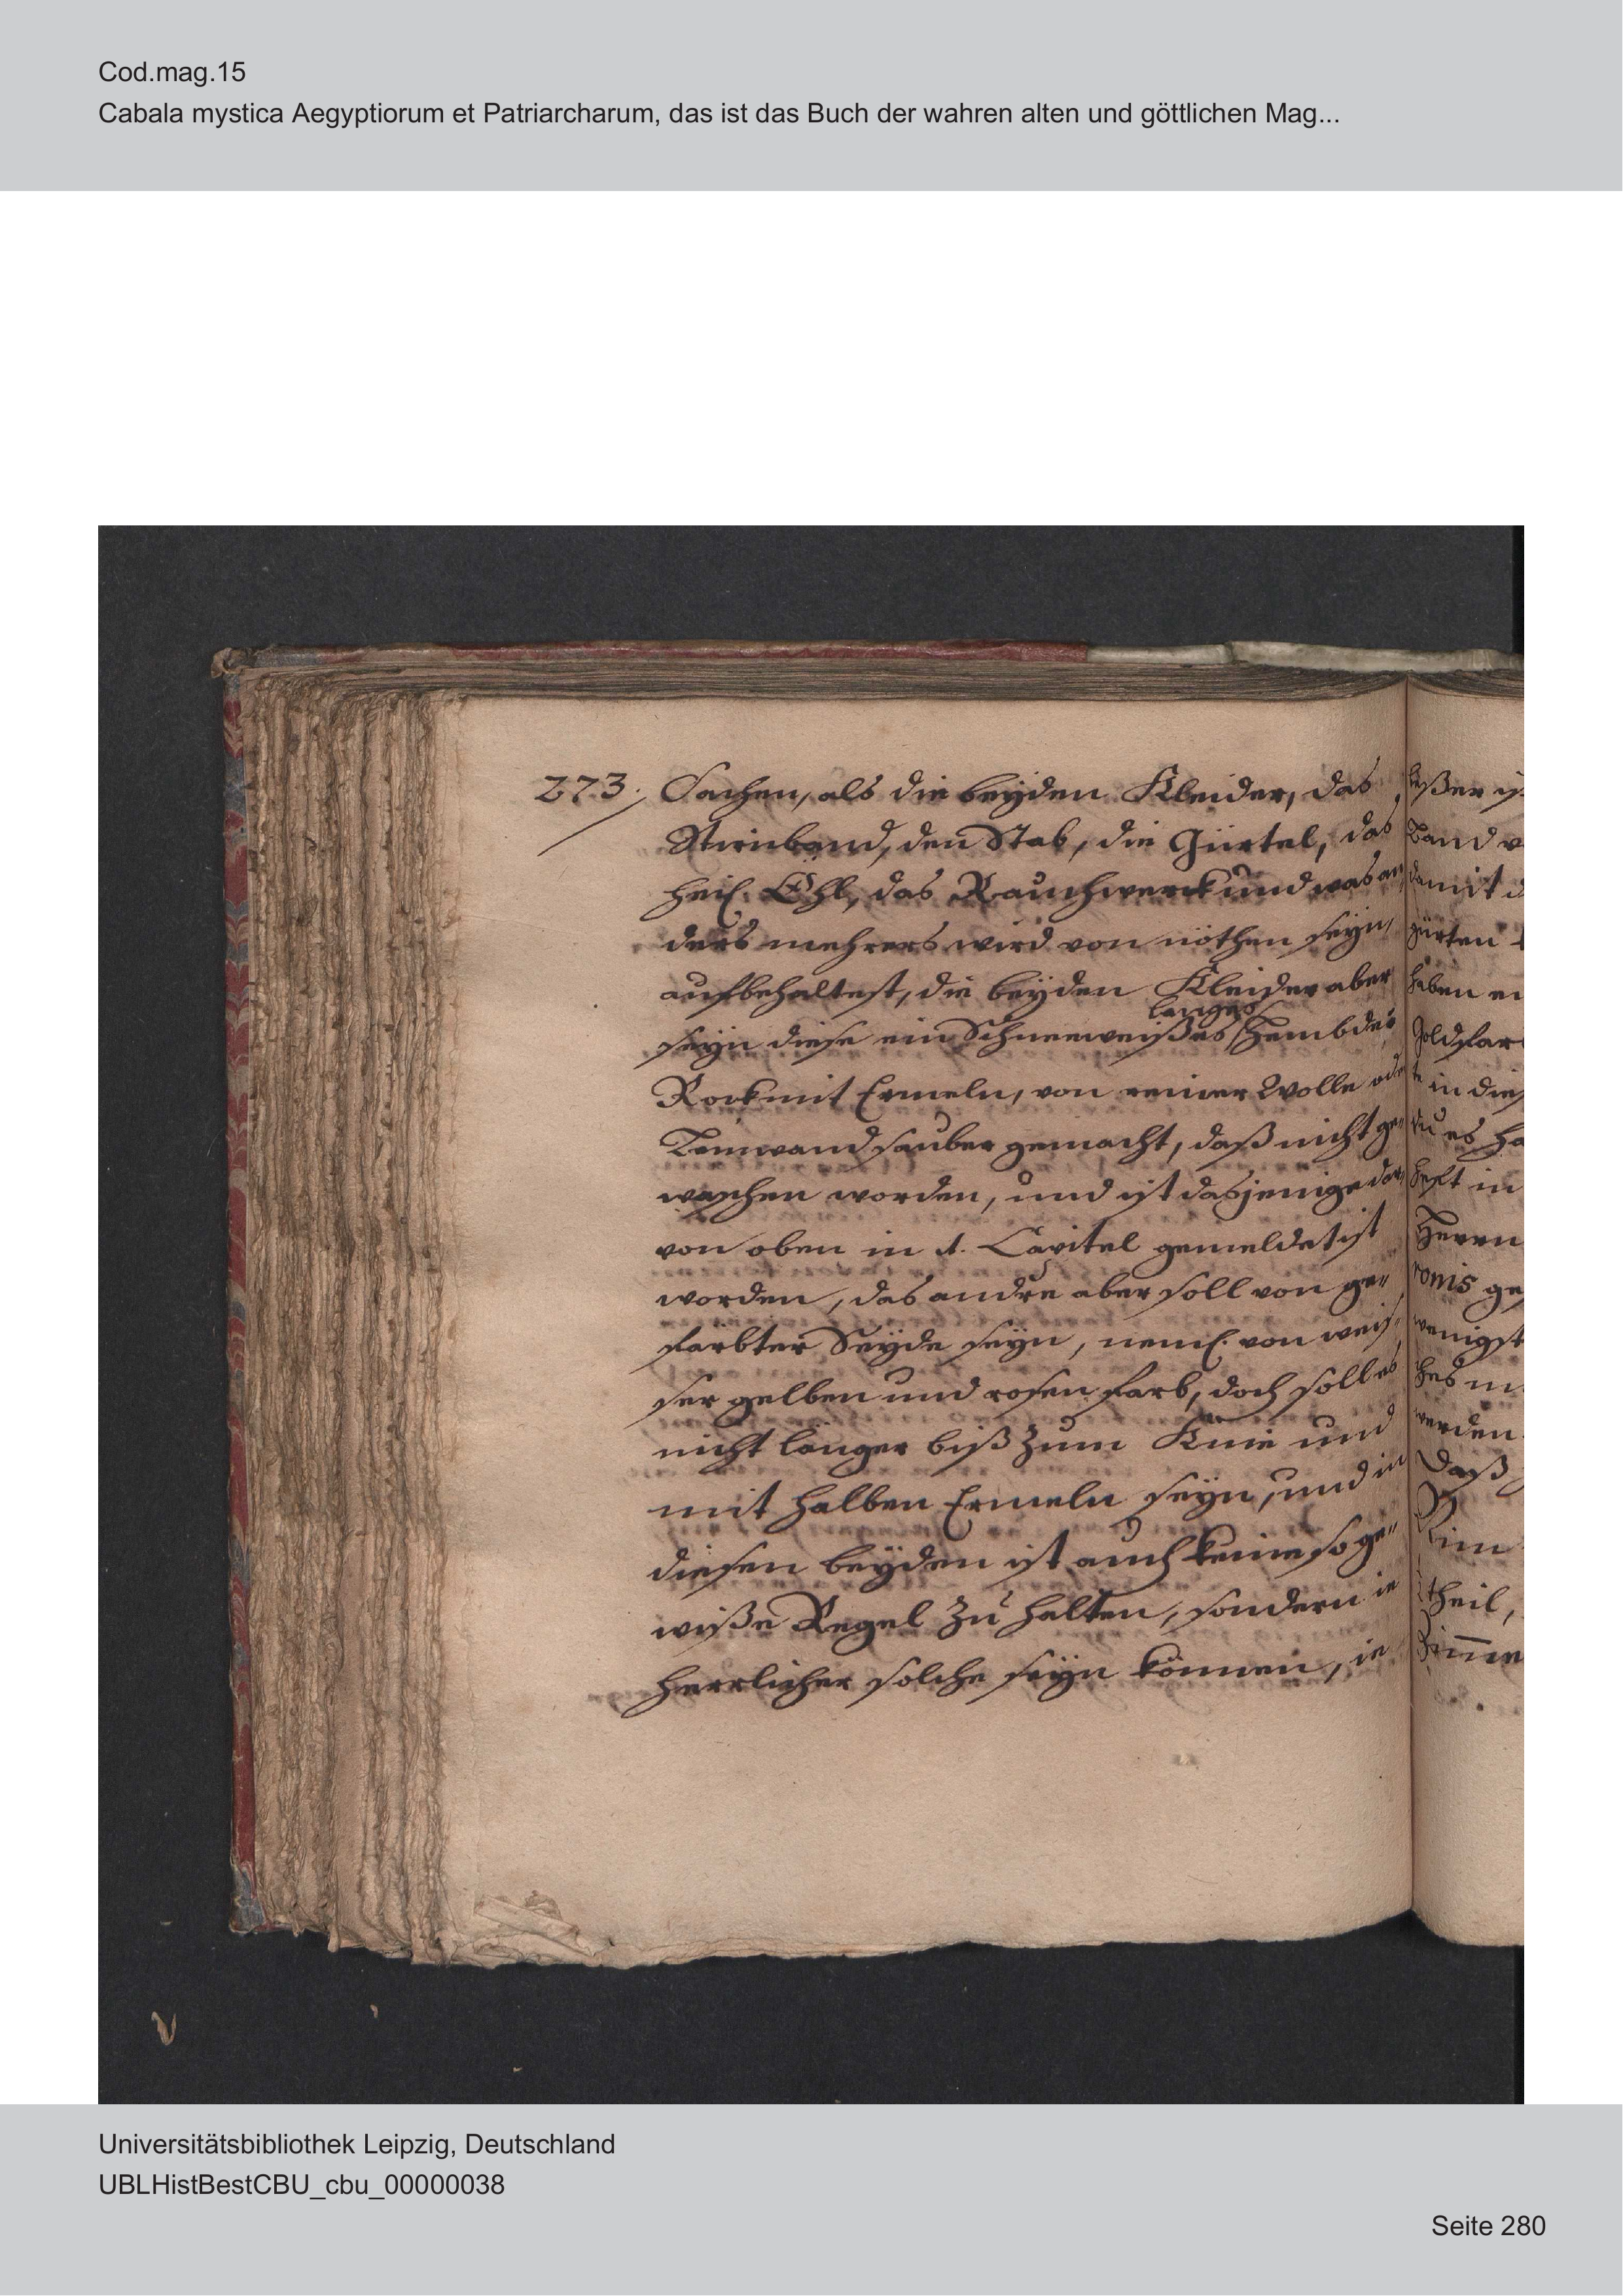 Cod.mag.15
Cabala mystica Aegyptiorum et Patriarcharum, das ist das Buch der wahren alten und göttlichen Mag...
273. Sachen, als die beyden Kleider, das
Stirnband, den Stab, die Gürtel, das
heil. Öhl, das Rauchwerck und was an,
ders mehrers wird von nöthen seyn,
aufbehaltest, die beyden Kleider aber
langes
seyn diese ein Schneeweißes Hembder
Rock mit Ermeln, von reiner Wolle oder
Leinwand sauber gemacht, daß nicht ge,
waschen worden, und ist dasjenige dar,
von oben in 1. Capitel gemeldet ist
worden, das andre aber soll von ge„
färbter Seyde seyn, neml. von weis„
ser gelben und rosen farb, doch soll es
nicht länger biß zum Knie und
mit halben Ermeln seyn, und in
diesen beyden ist auch keine so ge„
wiße Regel zu halten, sondern ie
herrlicher solche seyn können, ie
Band
damit
gürten
haben
in
es
in
Herrn
wenigst
werden
Daß
theil,
Universitätsbibliothek Leipzig, Deutschland
UBLHistBestCBU_cbu_00000038
Seite 280